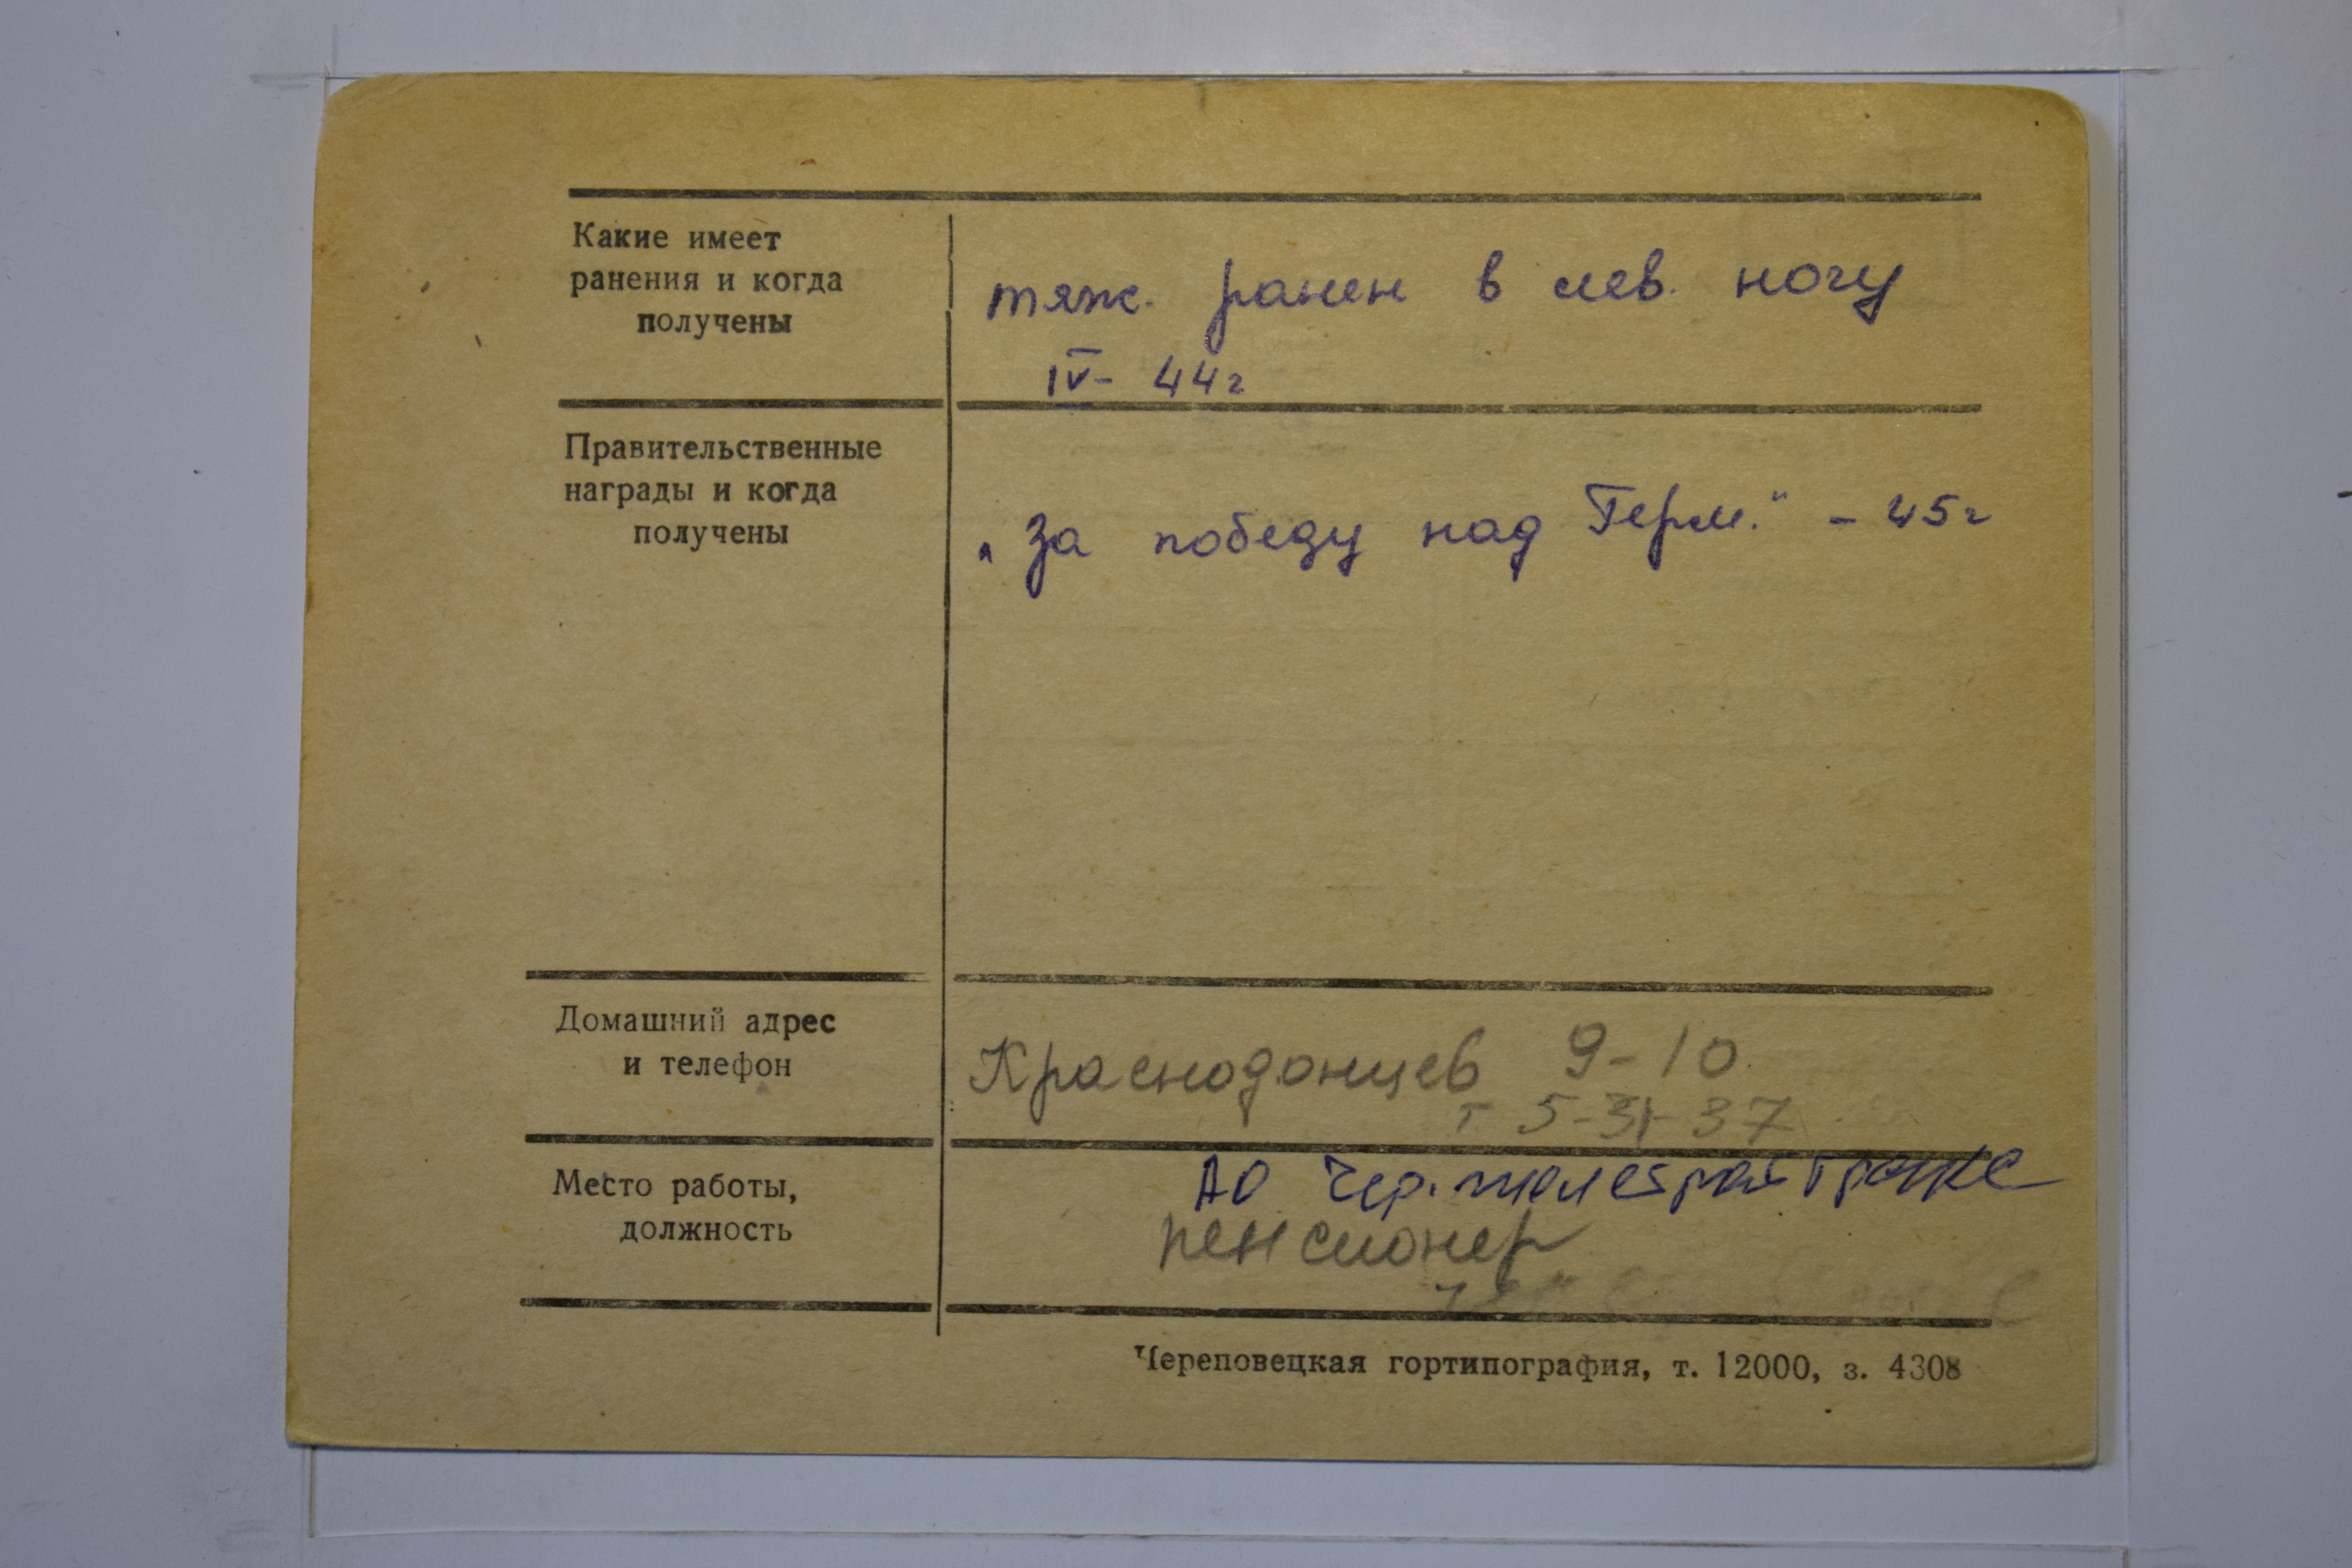 Какие имеет
ранения и когда
получены
тяж. ранен в лев. ногу
IV- 44г
Правительственные
награды и когда
получены
„За победу над Герм." - 45г
Домашний адрес
и телефон
Краснодонцев 9-10
т 5-31-37
Место работы,
должность
АО Чер.
пенсионер
Череповецкая гортипография, т. 12000, з. 4308